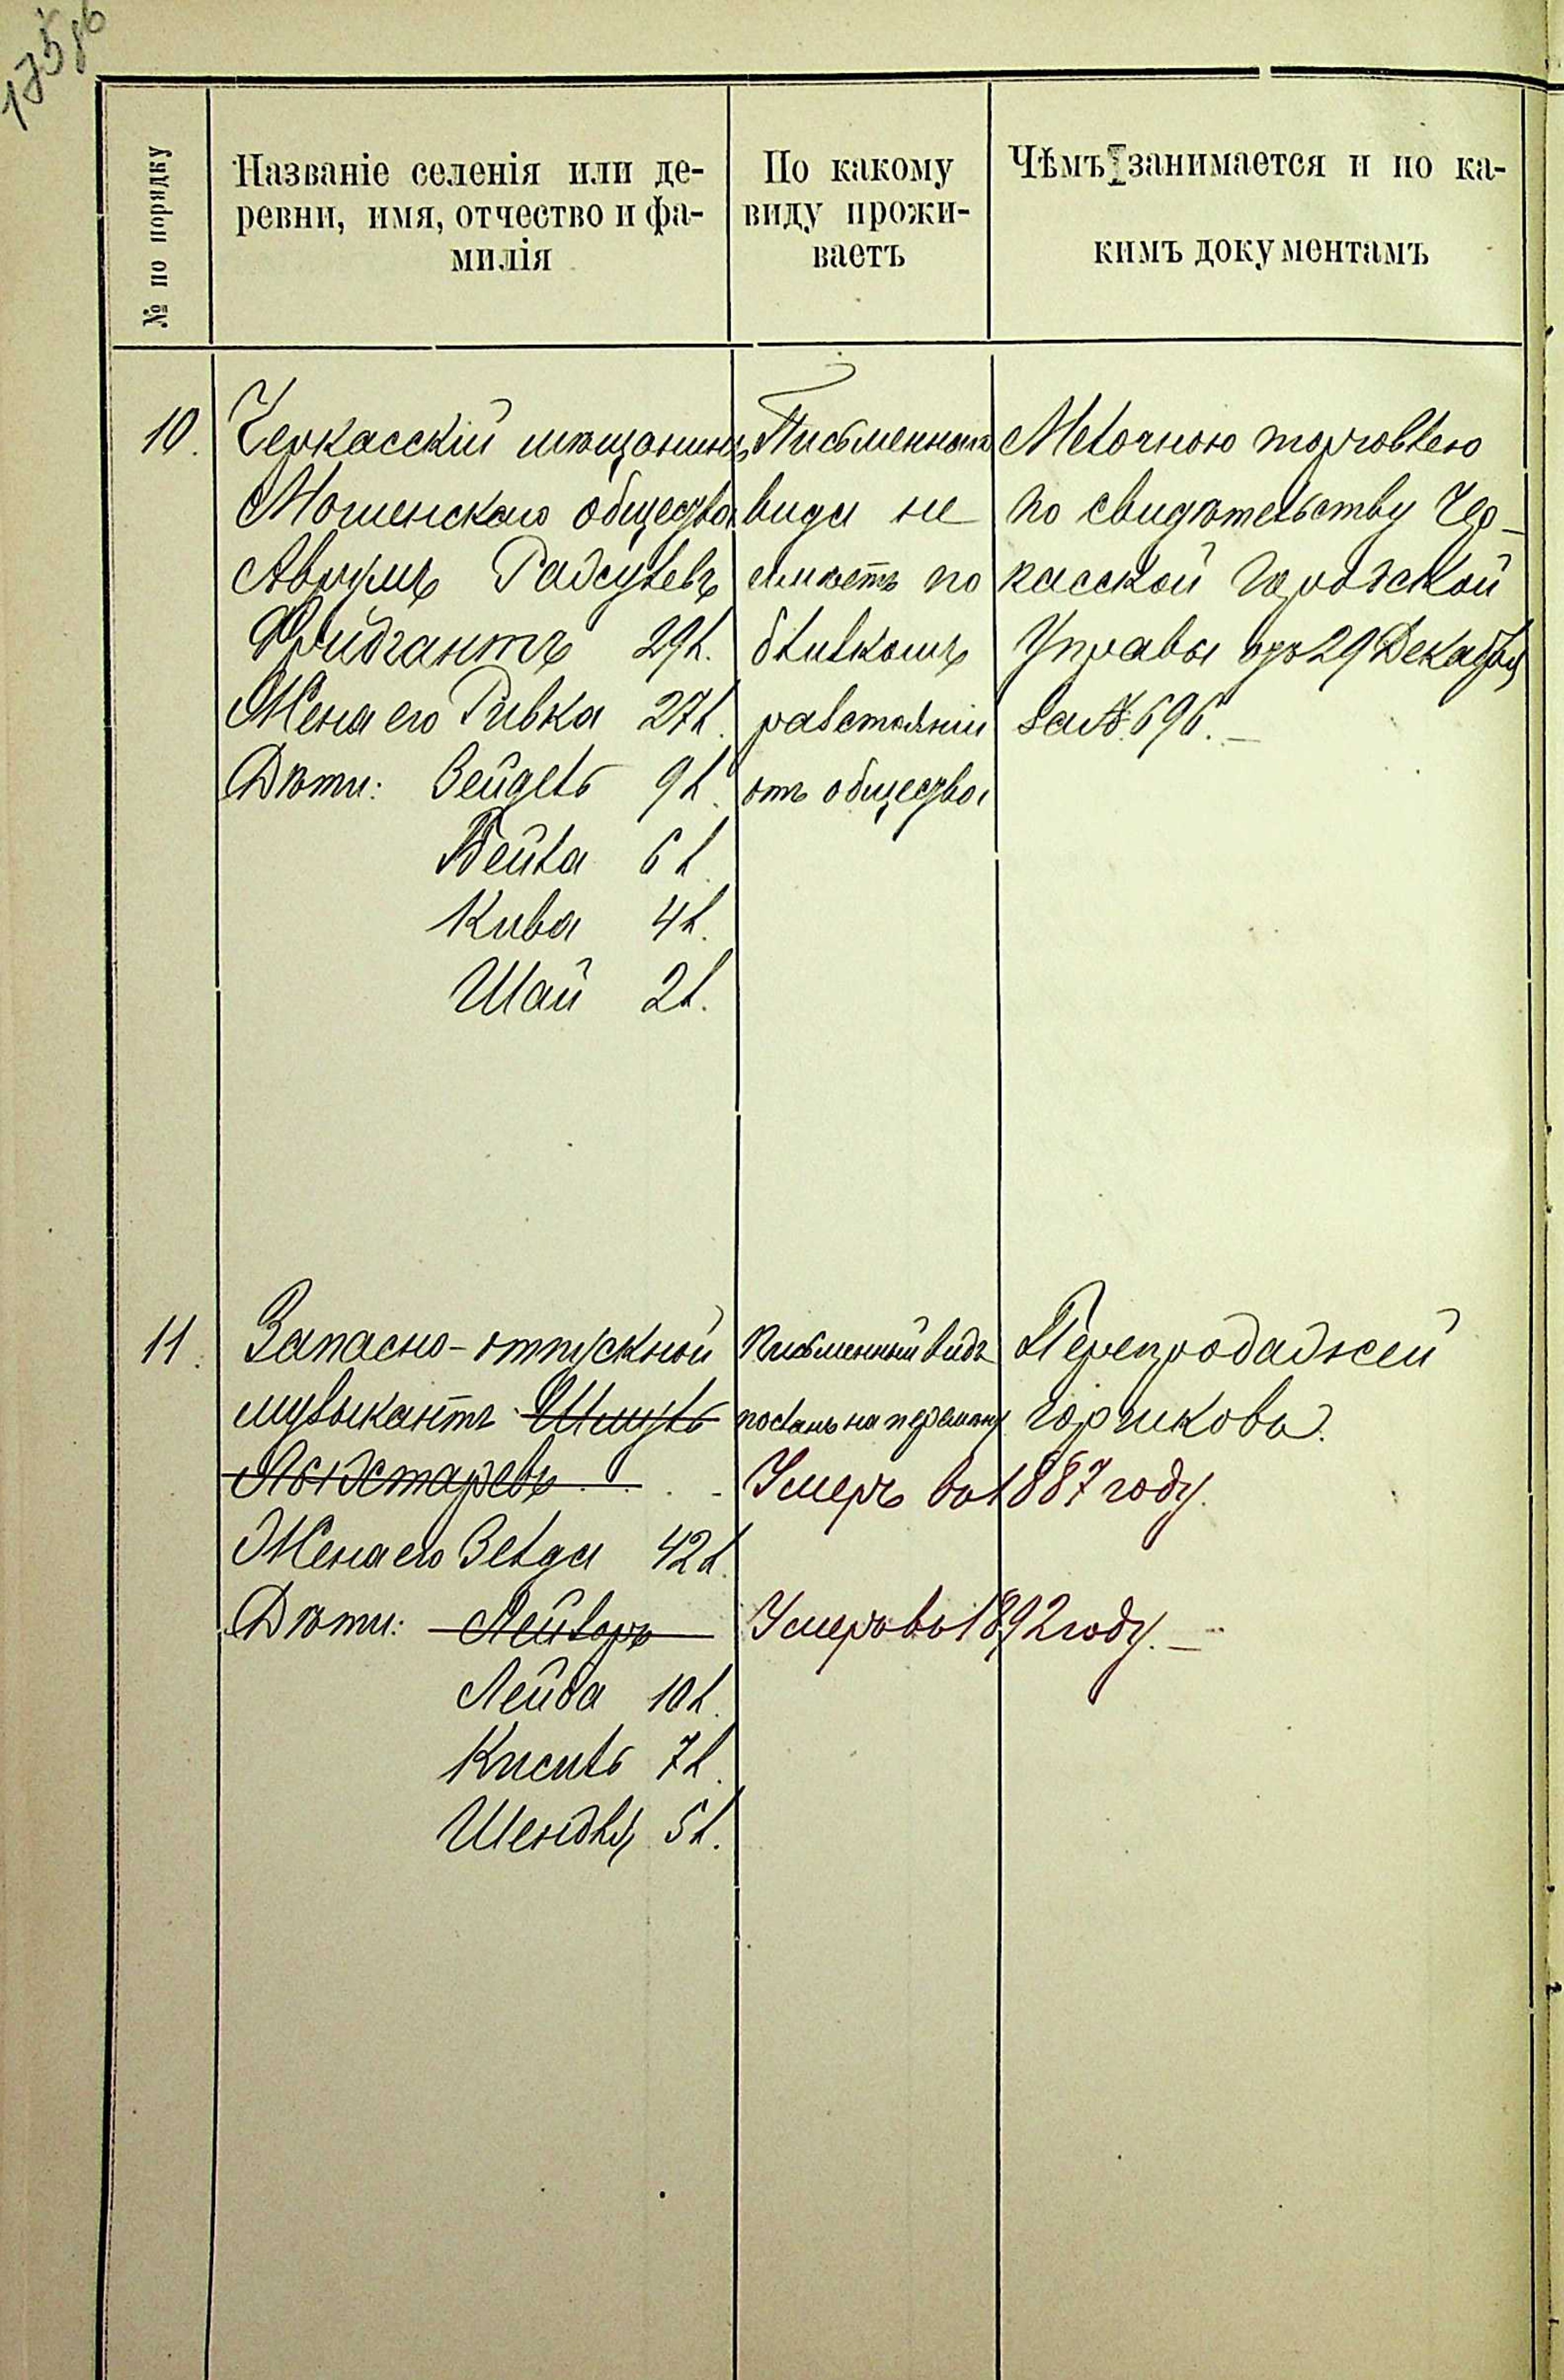 175 об
№ по порядку
Названіе селенія или де-
ревни, имя, отчество и фа-
милія
По какому
виду прожи-
ваетъ
Чѣмъ занимается и по ка-
кимъ документамъ
10.
Черкасскій мѣщанинъ
Мошенскаго общества
Аврумъ
Фридгантъ 29 л.
Жена его Ривка 27 л.
Дѣти: Зейдель 9 л.
Бейла 6 л.
Кива 4 л.
Шая 2 л.
Письменнаго
вида не
имѣетъ по
близкомъ
разстояніи
отъ общества
Мелочною торговлею
по свидѣтельству Чер-
касской Городской
Управы отъ 29 Декабря
за № 696.
11.
Запасно-отпускной
музыкантъ Шмуль
Жена его Зелда 42 л.
Дѣти: Лейзоръ
Лейба 10 л.
Кисиль 7 л.
Шендля 5 л.
Письменный видъ
посланъ на перемѣну
Умеръ въ 1887 году.
Умеръ въ 1892 году.
Перепродажей
горшковъ.